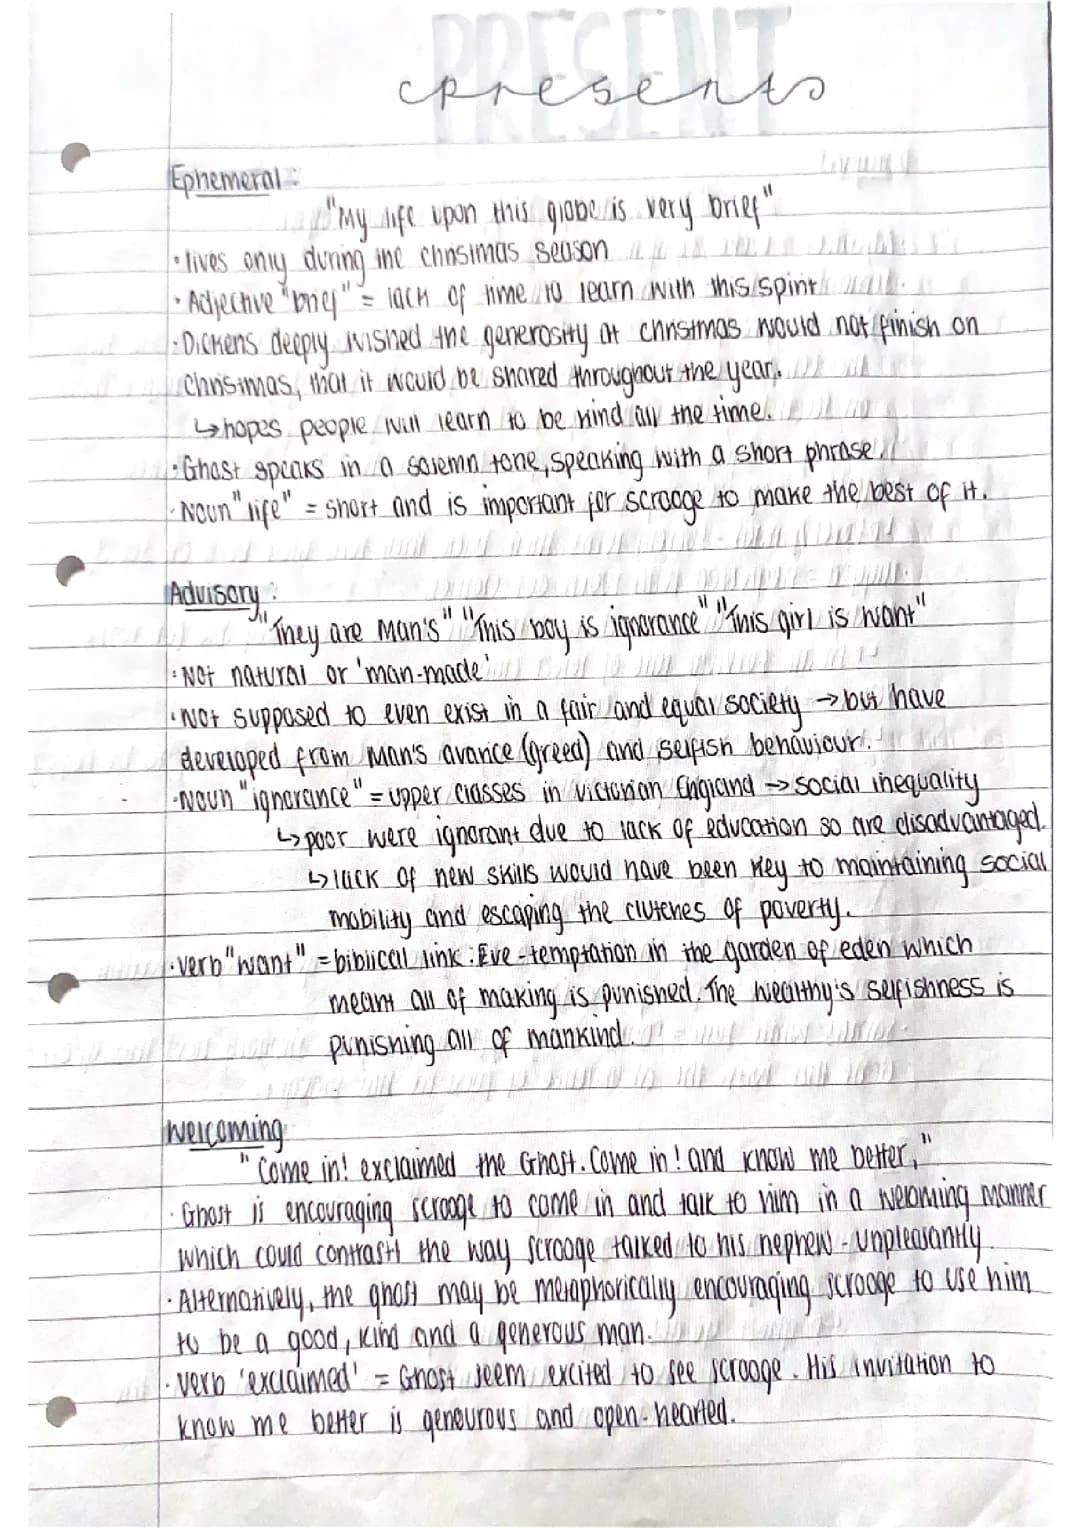 PRESENT
presents
Ephemeral:
"My life upon this globe is very brief"
• lives only during the christmas season
• Adjective "brief" = lack of time to learn with this spirit
• Dickens deeply wished the generosity at christmas would not finish on
Christmas, that it would be shared throughout the year.
↳ hopes people will learn to be kind all the time.
• Ghost speaks in a solemn tone, speaking with a short phrase
• Noun "life" = short and is important for scrooge to make the best of it.
Advisory:
"They are Man's" "This boy is ignorance" "This girl is want"
• Not natural or 'man-made'
• Not supposed to even exist in a fair and equal society → but have
developed from Man's avarice (greed) and selfish behaviour.
• Noun "ignorance" = upper classes in victorian England → social inequality
↳ poor were ignorant due to lack of education so are disadvantaged.
↳ lack of new skills would have been key to maintaining social
mobility and escaping the clutches of poverty.
• verb "want" = biblical link: Eve - temptation in the garden of eden which
meant all of making is punished. The wealthy's selfishness is
punishing all of mankind.
Welcoming
"Come in! exclaimed the Ghost. Come in! and know me better,"
• Ghost is encouraging scrooge to come in and talk to him in a welcoming manner
which could contrast the way scrooge talked to his nephew - unpleasantly
• Alternatively, the ghost may be metaphorically encouraging scrooge to use him
to be a good, kind and a generous man.
• verb 'exclaimed' = Ghost seem excited to see scrooge. His invitation to
know me better is geneurous and open-hearted.